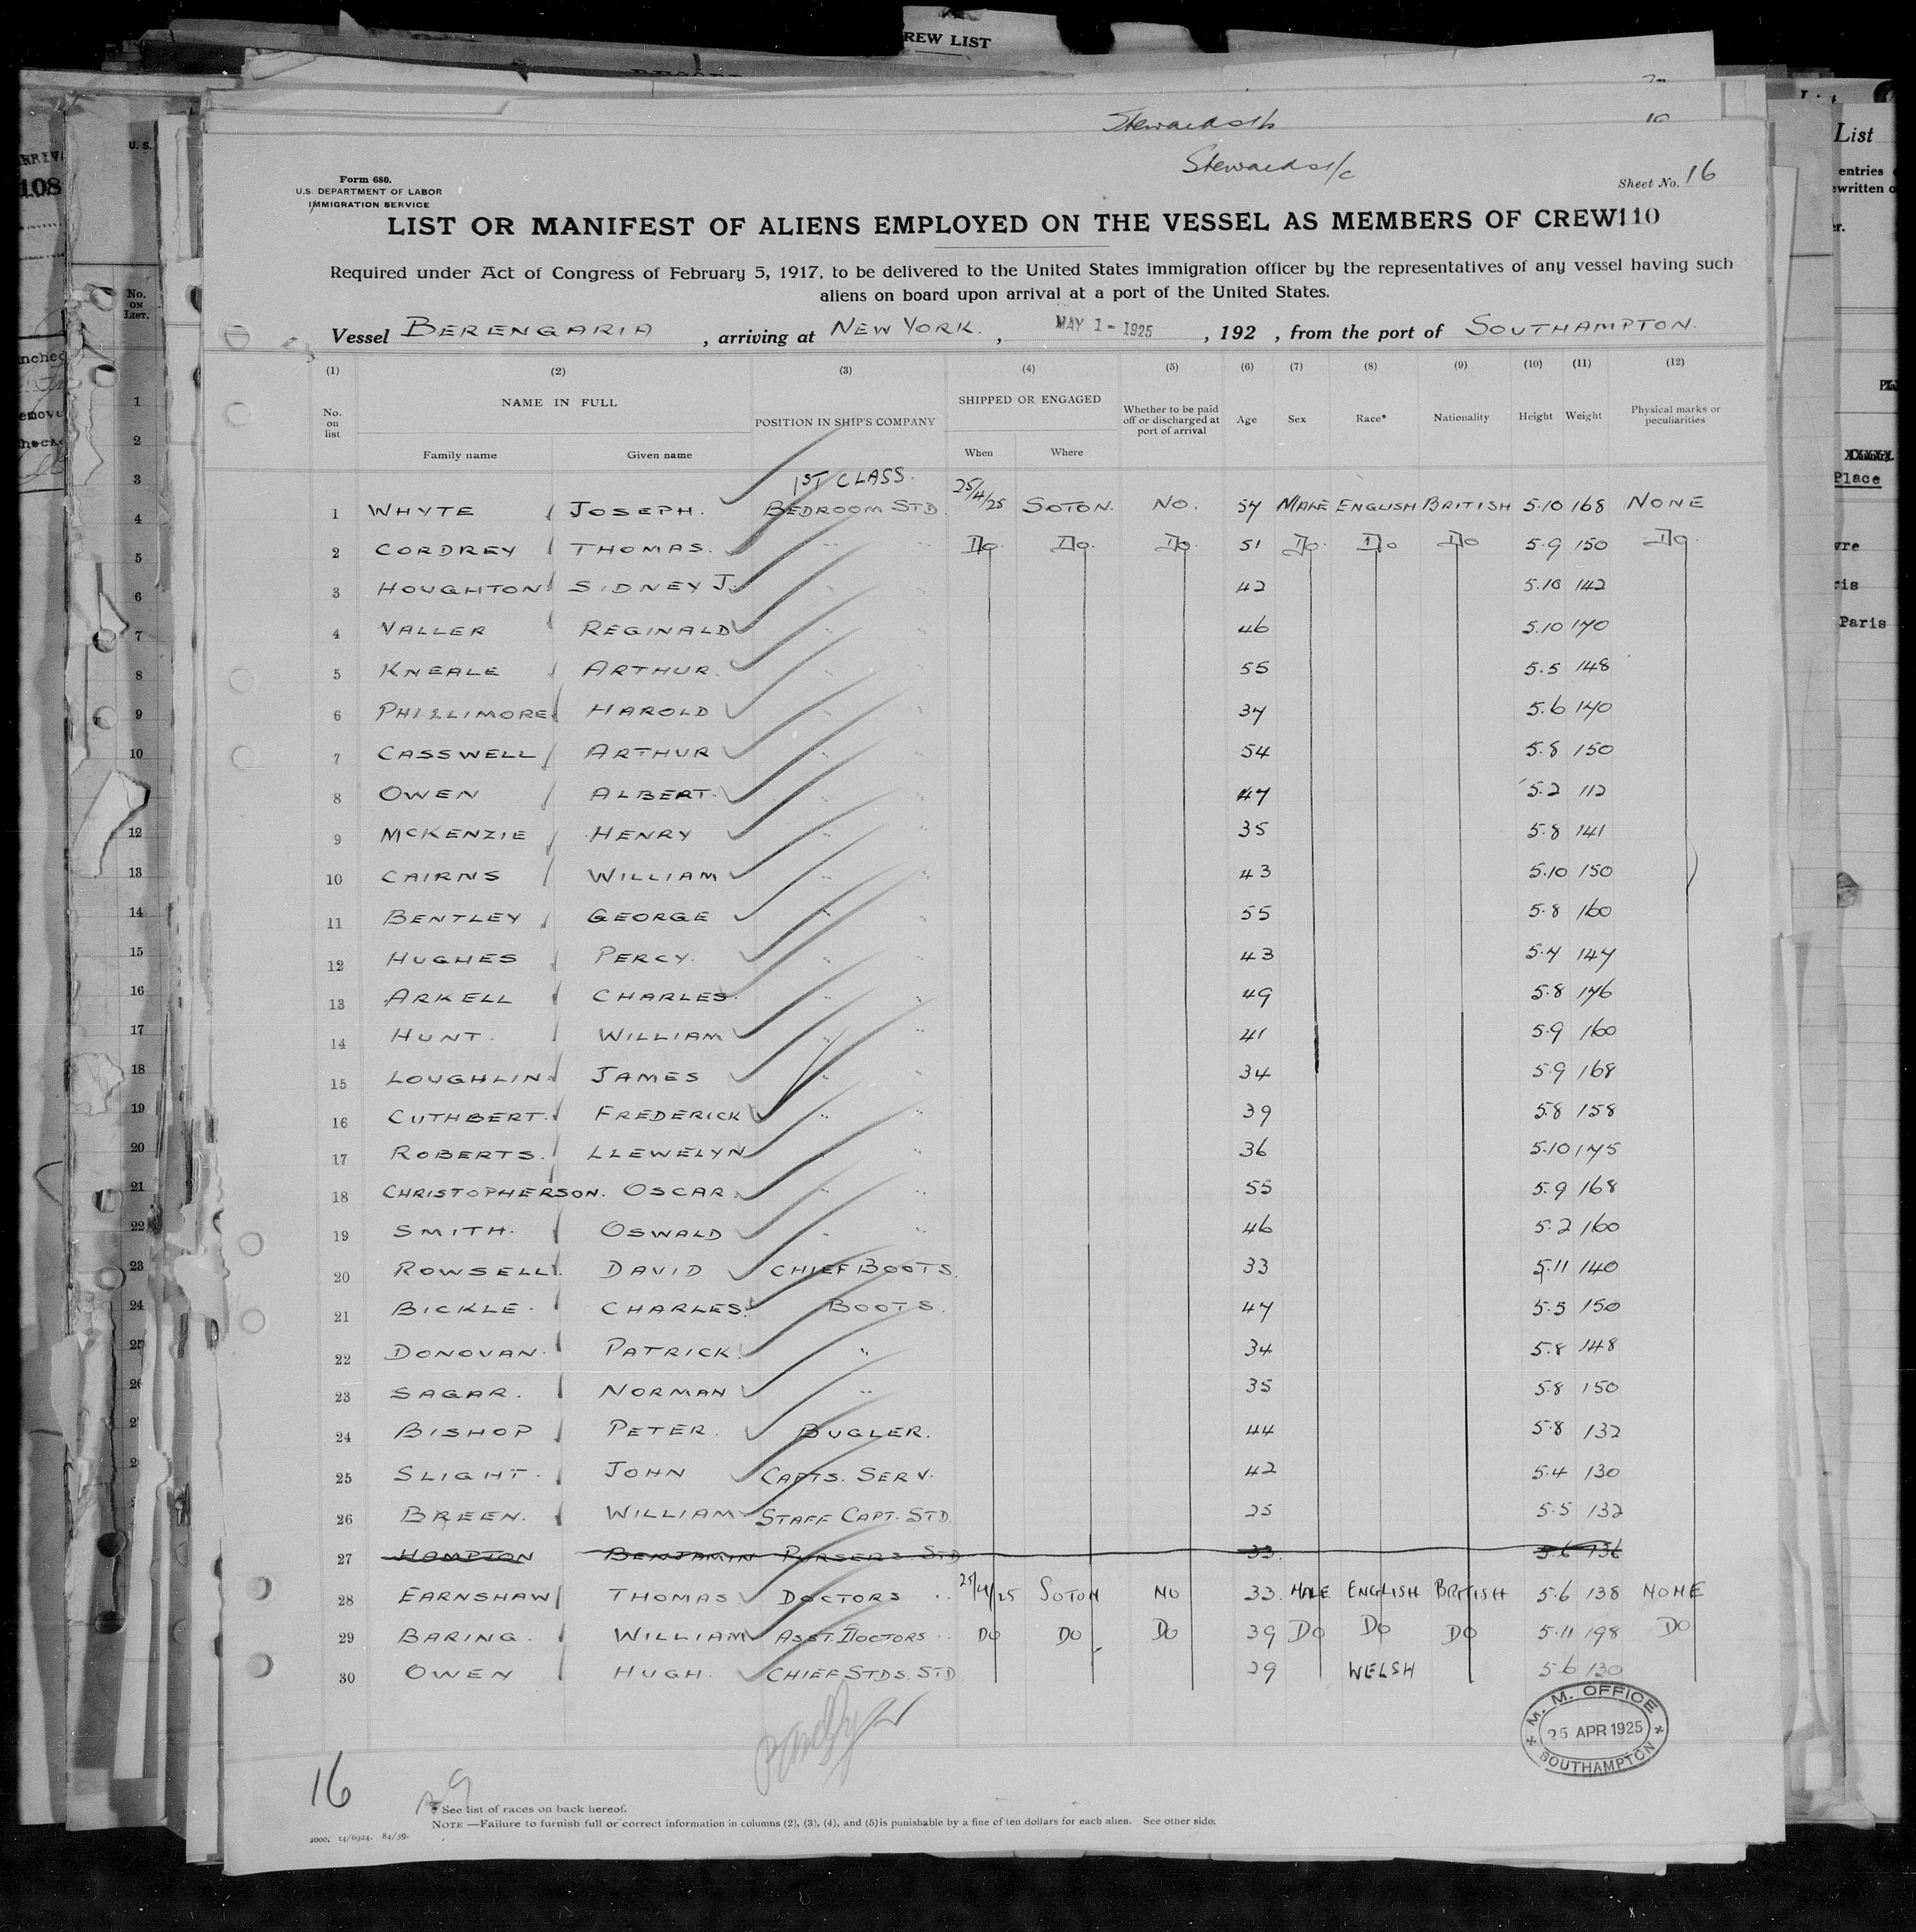 REW LIST
Stewards 1/c
Sheet No. 16
Form 680.
U.S. DEPARTMENT OF LABOR
IMMIGRATION SERVICE
LIST OR MANIFEST OF ALIENS EMPLOYED ON THE VESSEL AS MEMBERS OF CREW 110
Required under Act of Congress of February 5, 1917, to be delivered to the United States immigration officer by the representatives of any vessel having such
aliens on board upon arrival at a port of the United States.
Vessel BERENGARIA, arriving at NEW YORK., MAY 1 - 1925, 192 , from the port of SOUTHAMPTON.
(1) (2) (3) (4) (5) (6) (7) (8) (9) (10) (11) (12)
No. on list NAME IN FULL POSITION IN SHIP'S COMPANY SHIPPED OR ENGAGED Whether to be paid off or discharged at port of arrival Age Sex Race* Nationality Height Weight Physical marks or peculiarities
Family name Given name When Where
1ST CLASS.
1 WHYTE JOSEPH. BEDROOM STD 25/4/25 SOTON. NO. 57 MALE ENGLISH BRITISH 5.10 168 NONE
2 CORDREY THOMAS. " " Do. Do. Do. 51 Do. Do Do 5.9 150 Do.
3 HOUGHTON SIDNEY J. " " 42 5.10 142
4 VALLER REGINALD " " 46 5.10 170
5 KNEALE ARTHUR. " " 55 5.5 148
6 PHILLIMORE HAROLD " " 37 5.6 140
7 CASSWELL ARTHUR " " 54 5.8 150
8 OWEN ALBERT. " " 47 5.2 112
9 MCKENZIE HENRY " " 35 5.8 141
10 CAIRNS WILLIAM " " 43 5.10 150
11 BENTLEY GEORGE " " 55 5.8 160
12 HUGHES PERCY. " " 43 5.7 147
13 ARKELL CHARLES. " " 49 5.8 176
14 HUNT. WILLIAM " " 41 5.9 160
15 LOUGHLIN JAMES " " 34 5.9 168
16 CUTHBERT. FREDERICK " " 39 5.8 158
17 ROBERTS. LLEWELYN " " 36 5.10 175
18 CHRISTOPHERSON. OSCAR. " " 55 5.9 168
19 SMITH. OSWALD " " 46 5.2 160
20 ROWSELL. DAVID CHIEF BOOTS. 33 5.11 140
21 BICKLE. CHARLES. BOOTS. 47 5.5 150
22 DONOVAN. PATRICK. " 34 5.8 148
23 SAGAR. NORMAN " 35 5.8 150
24 BISHOP PETER. BUGLER. 44 5.8 132
25 SLIGHT. JOHN CAPTS. SERV. 42 5.4 130
26 BREEN. WILLIAM STAFF CAPT. STD. 25 5.5 132
27 HAMPTON BENJAMIN PURSERS STD 33. 5.6 136
28 EARNSHAW THOMAS DOCTORS " 25/4/25 SOTON NO 33. MALE ENGLISH BRITISH 5.6 138 NONE
29 BARING. WILLIAM ASST. DOCTORS " DO DO DO 39 DO DO DO 5.11 198 DO
30 OWEN HUGH. CHIEF STDS. STD 29 WELSH 5.6 130
M. M. OFFICE
25 APR 1925
SOUTHAMPTON
16
* See list of races on back hereof.
NOTE —Failure to furnish full or correct information in columns (2), (3), (4), and (5) is punishable by a fine of ten dollars for each alien. See other side.
2000. 14/6924. 84/39.
108
U. S.
No. ON LIST.
List
entries
Place
Paris